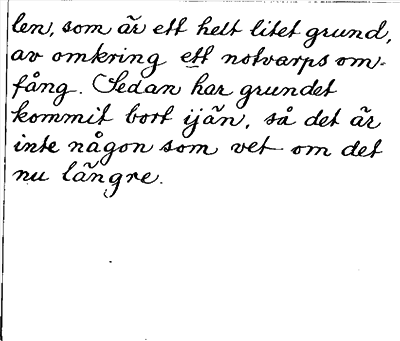 len, som är ett helt litet grund,
av omkring ett notvarps om-
fång. Sedan har grundet
kommit bort ijän, så det är
inte någon som vet om det
nu längre.